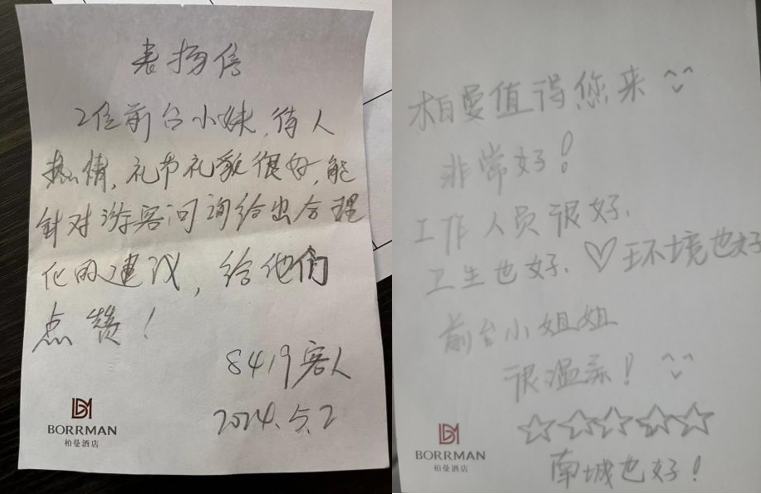 表扬信
2位前台小妹,待人
热情,礼节礼貌很好,能
针对游客问询给出合理
化的建议,给他们
点赞!
8419客人
2024.5.2
BORRMAN
柏曼酒店
柏曼值得您来
非常好!
工作人员很好.
卫生也好.♡环境也好
前台小姐姐
很温柔!
☆☆☆☆☆
BORRMAN
柏曼酒店
南城也好!